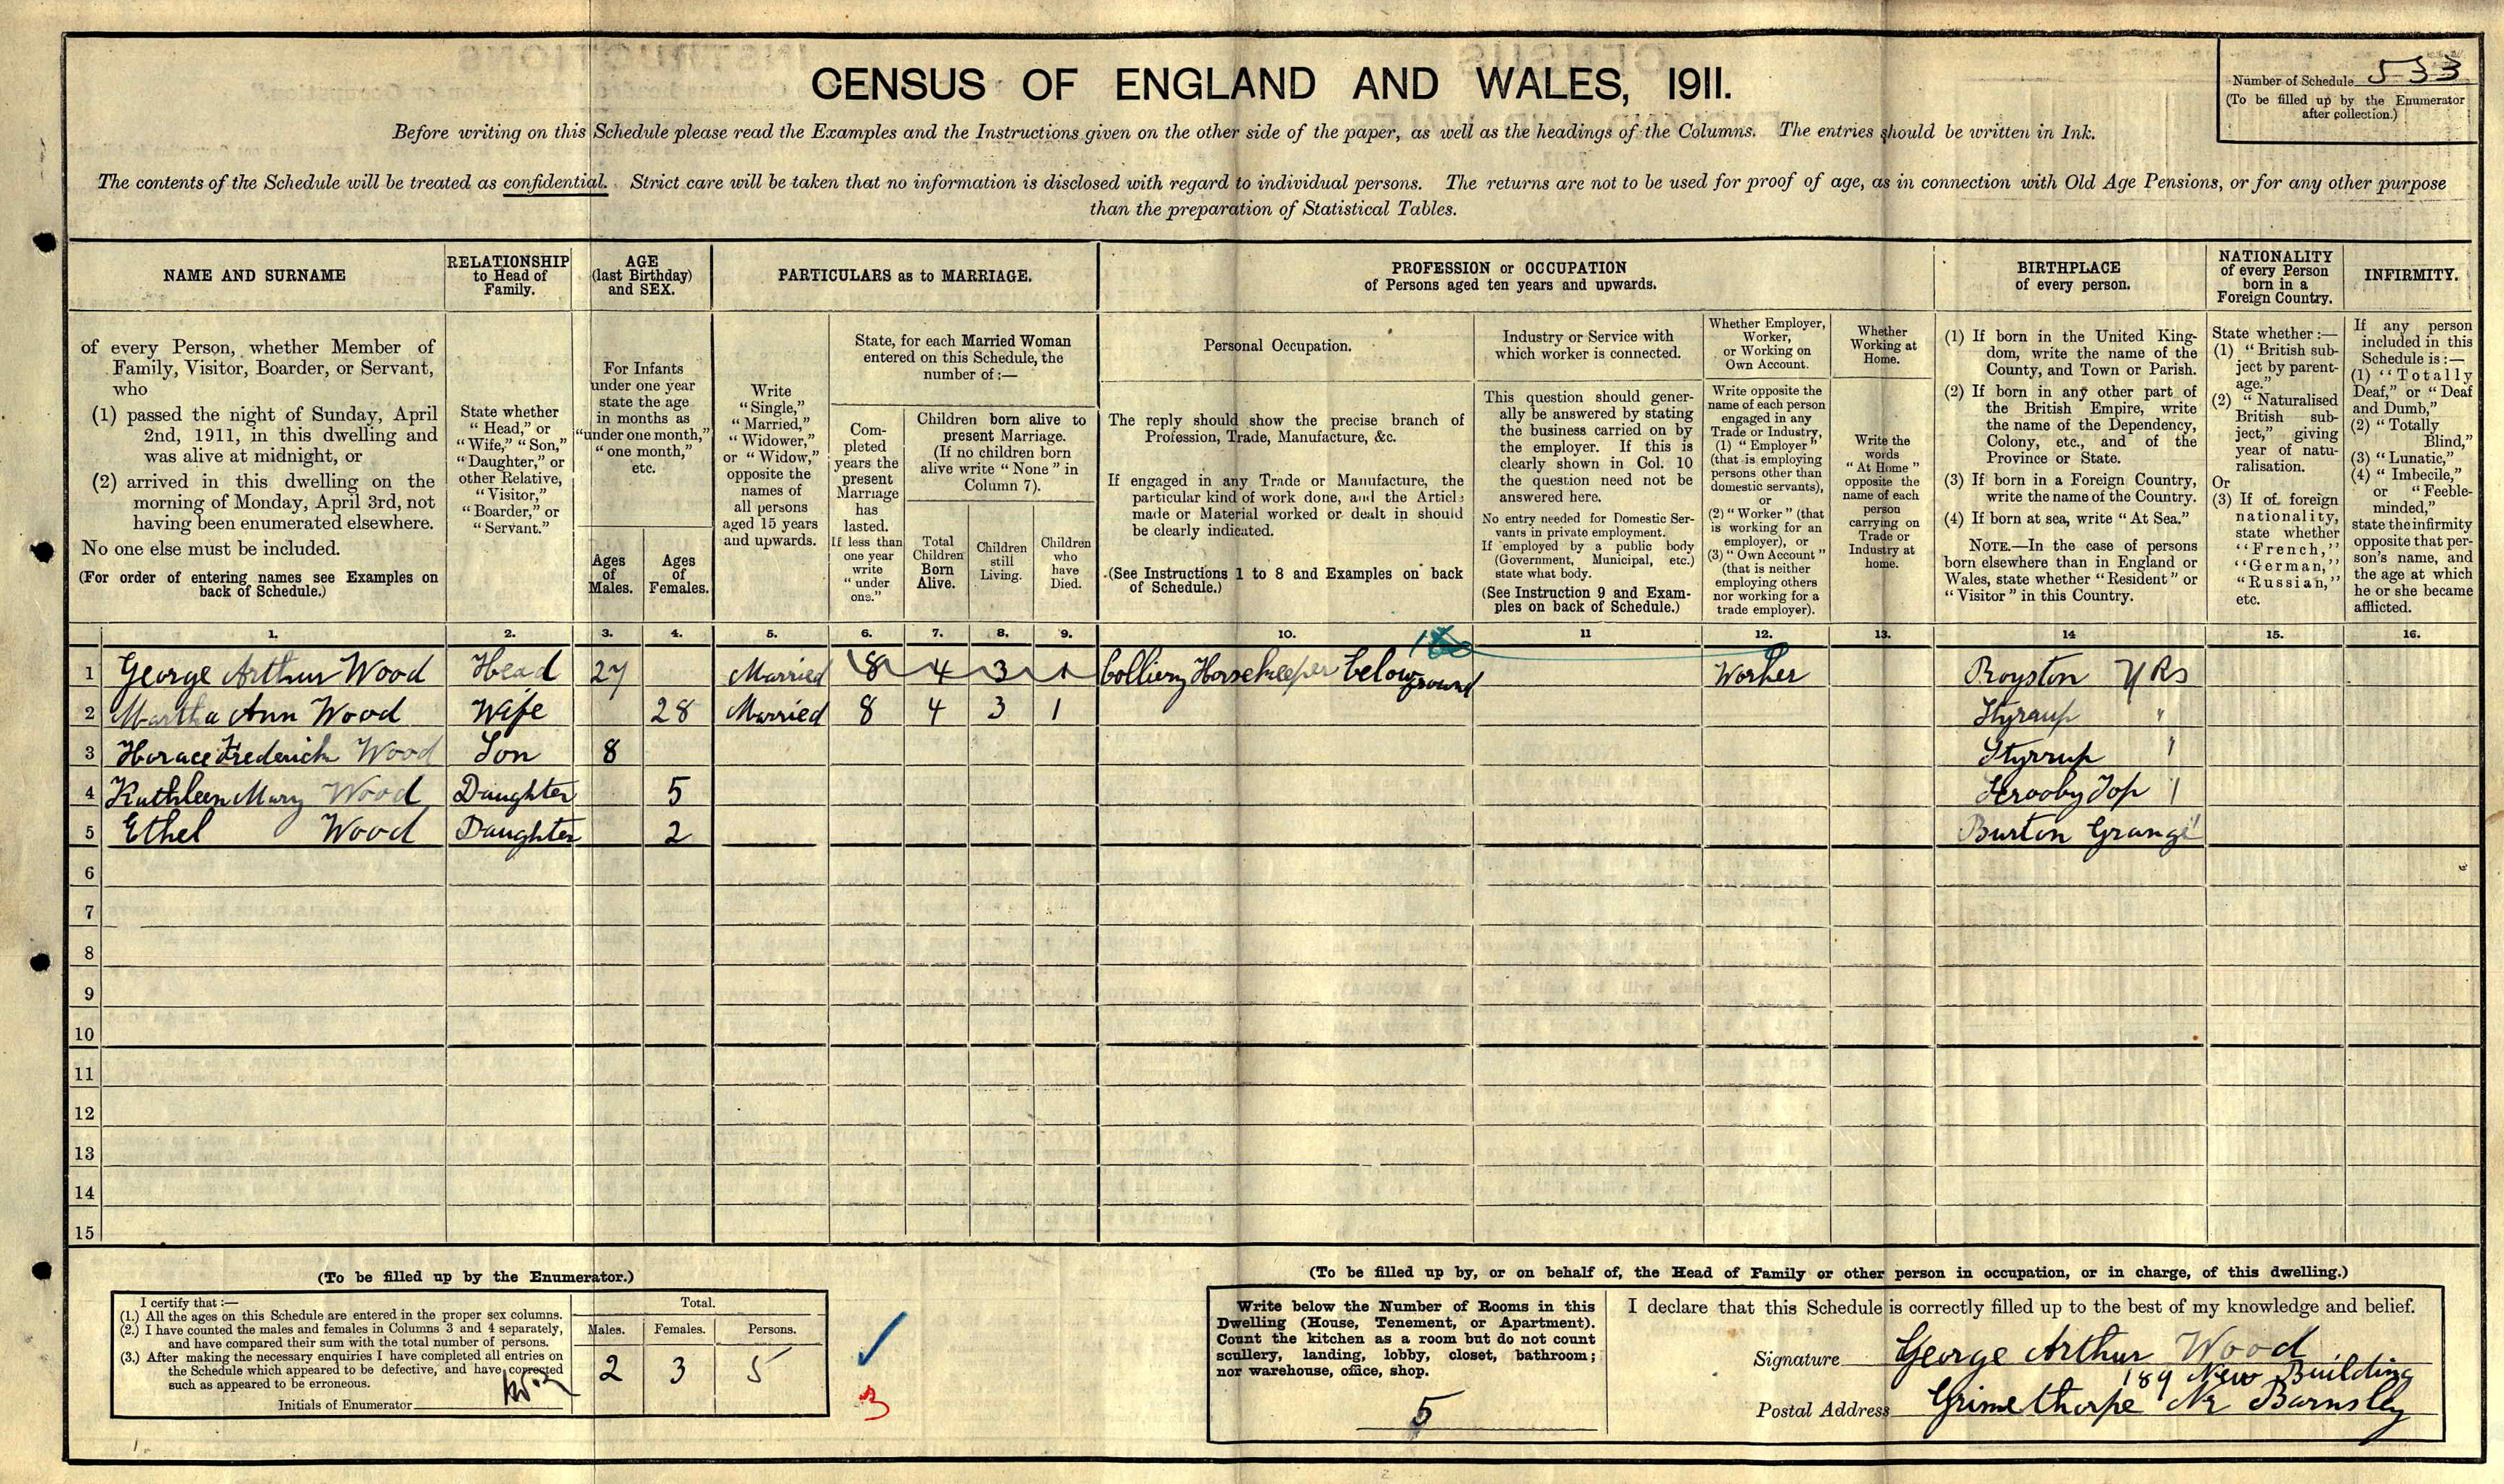 CENSUS OF ENGLAND AND WALES, 1911.
Number of Schedule 533
(To be filled up by the Enumerator
after collection.)
Before writing on this Schedule please read the Examples and the Instructions given on the other side of the paper, as well as the headings of the Columns. The entries should be written in Ink.
The contents of the Schedule will be treated as confidential. Strict care will be taken that no information is disclosed with regard to individual persons. The returns are not to be used for proof of age, as in connection with Old Age Pensions, or for any other purpose
than the preparation of Statistical Tables.
NAME AND SURNAME
of every Person, whether Member of
Family, Visitor, Boarder, or Servant,
who
(1) passed the night of Sunday, April
2nd, 1911, in this dwelling and
was alive at midnight, or
(2) arrived in this dwelling on the
morning of Monday, April 3rd, not
having been enumerated elsewhere.
No one else must be included.
(For order of entering names see Examples on
back of Schedule.)
RELATIONSHIP
to Head of
Family.
State whether
"Head," or
"Wife," "Son,"
"Daughter," or
other Relative,
"Visitor,"
"Boarder," or
"Servant."
AGE
(last Birthday)
and SEX.
For Infants
under one year
state the age
in months as
"under one month,"
"one month,"
etc.
Ages
of
Males.
Ages
of
Females.
PARTICULARS as to MARRIAGE.
Write
"Single,"
"Married,"
"Widower,"
or "Widow,"
opposite the
names of
all persons
aged 15 years
and upwards.
State, for each Married Woman
entered on this Schedule, the
number of:—
Com-
pleted
years the
present
Marriage
has
lasted.
If less than
one year
write
"under
one."
Children born alive to
present Marriage.
(If no children born
alive write "None" in
Column 7).
Total
Children
Born
Alive.
Children
still
Living.
Children
who
have
Died.
PROFESSION or OCCUPATION
of Persons aged ten years and upwards.
Personal Occupation.
The reply should show the precise branch of
Profession, Trade, Manufacture, &c.
If engaged in any Trade or Manufacture, the
particular kind of work done, and the Article
made or Material worked or dealt in should
be clearly indicated.
(See Instructions 1 to 8 and Examples on back
of Schedule.)
Industry or Service with
which worker is connected.
This question should gener-
ally be answered by stating
the business carried on by
the employer. If this is
clearly shown in Col. 10
the question need not be
answered here.
No entry needed for Domestic Ser-
vants in private employment.
If employed by a public body
(Government, Municipal, etc.)
state what body.
(See Instruction 9 and Exam-
ples on back of Schedule.)
Whether Employer,
Worker,
or Working on
Own Account.
Write opposite the
name of each person
engaged in any
Trade or Industry,
(1) "Employer"
(that is employing
persons other than
domestic servants),
or
(2) "Worker" (that
is working for an
employer), or
(3) "Own Account"
(that is neither
employing others
nor working for a
trade employer).
Whether
Working at
Home.
Write the
words
"At Home"
opposite the
name of each
person
carrying on
Trade or
Industry at
home.
BIRTHPLACE
of every person.
(1) If born in the United King-
dom, write the name of the
County, and Town or Parish.
(2) If born in any other part of
the British Empire, write
the name of the Dependency,
Colony, etc., and of the
Province or State.
(3) If born in a Foreign Country,
write the name of the Country.
(4) If born at sea, write "At Sea."
NOTE.—In the case of persons
born elsewhere than in England or
Wales, state whether "Resident" or
"Visitor" in this Country.
NATIONALITY
of every Person
born in a
Foreign Country.
State whether:—
(1) "British sub-
ject by parent-
age."
(2) "Naturalised
British sub-
ject," giving
year of natu-
ralisation.
Or
(3) If of foreign
nationality,
state whether
"French,"
"German,"
"Russian,"
etc.
INFIRMITY.
If any person
included in this
Schedule is:—
(1) "Totally
Deaf," or "Deaf
and Dumb,"
(2) "Totally
Blind,"
(3) "Lunatic,"
(4) "Imbecile,"
or "Feeble-
minded,"
state the infirmity
opposite that per-
son's name, and
the age at which
he or she became
afflicted.
1. 2. 3. 4. 5. 6. 7. 8. 9. 10. 11 12. 13. 14 15. 16.
1 George Arthur Wood Head 27 Married 8 4 3 1 Colliery Horsekeeper below ground Worker Royston Yks
2 Martha Ann Wood Wife 28 Married 8 4 3 1 Styraup "
3 Horace Frederick Wood Son 8 Styrrup "
4 Kathleen Mary Wood Daughter 5 Scrooby Top "
5 Ethel Wood Daughter 2 Burton Grange "
6
7
8
9
10
11
12
13
14
15
(To be filled up by the Enumerator.)
I certify that:—
(1.) All the ages on this Schedule are entered in the proper sex columns.
(2.) I have counted the males and females in Columns 3 and 4 separately,
and have compared their sum with the total number of persons.
(3.) After making the necessary enquiries I have completed all entries on
the Schedule which appeared to be defective, and have corrected
such as appeared to be erroneous.
Initials of Enumerator
Total.
Males. Females. Persons.
2 3 5
3
(To be filled up by, or on behalf of, the Head of Family or other person in occupation, or in charge, of this dwelling.)
Write below the Number of Rooms in this
Dwelling (House, Tenement, or Apartment).
Count the kitchen as a room but do not count
scullery, landing, lobby, closet, bathroom;
nor warehouse, office, shop.
5
I declare that this Schedule is correctly filled up to the best of my knowledge and belief.
Signature George Arthur Wood
189 New Building
Postal Address Grimethorpe Nr Barnsley